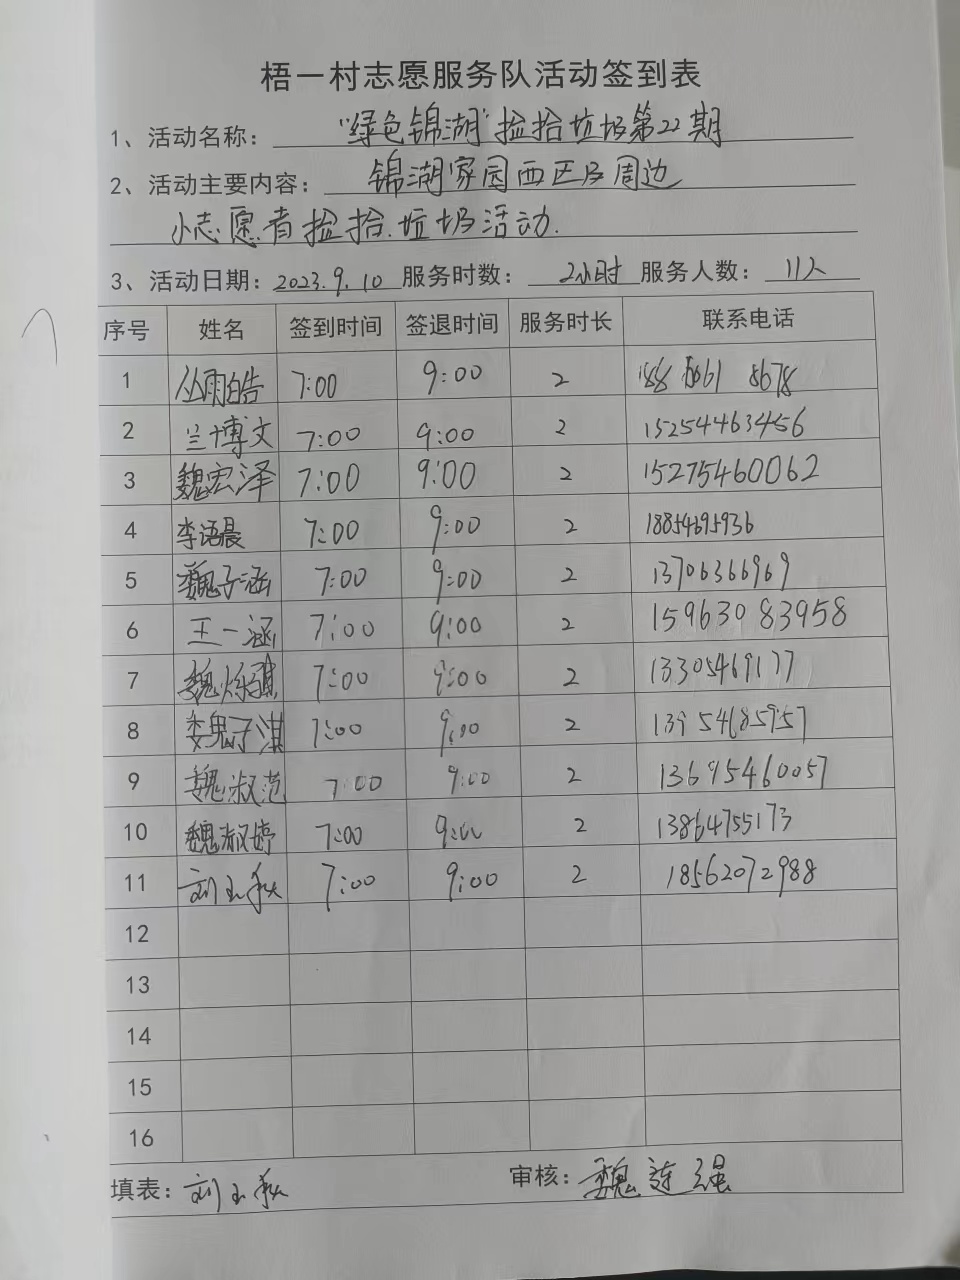 梧一村志愿服务队活动签到表
1、活动名称：“绿色锦湖”捡拾垃圾第22期
2、活动主要内容：锦湖家园西区及周边
小志愿者捡拾垃圾活动.
3、活动日期：2023.9.10 服务时数：2小时 服务人数：11人
序号 姓名 签到时间 签退时间 服务时长 联系电话
1 丛雨皓 7:00 9:00 2 188 8678
2 兰博文 7:00 9:00 2 15254463456
3 魏宏泽 7:00 9:00 2 15275460062
4 李语晨 7:00 9:00 2 18854695936
5 魏子涵 7:00 9:00 2 13706366969
6 王一涵 7:00 9:00 2 15963083958
7 魏 7:00 9:00 2 13305469177
8 魏子淇 7:00 9:00 2 13954685957
9 魏淑范 7:00 9:00 2 13695460057
10 魏淑婷 7:00 9:00 2 13864755173
11 刘玉秋 7:00 9:00 2 18562072988
12
13
14
15
16
填表：刘玉秋 审核：魏连强